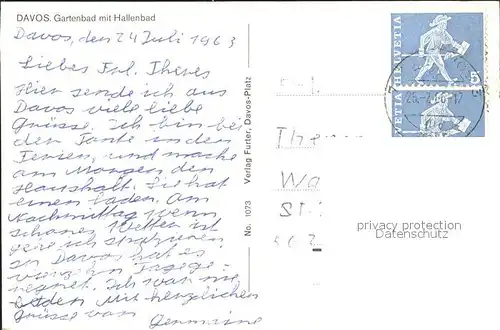 DAVOS. Gartenbad mit Hallenbad
Davos, den 24 Juli 1963
Liebes Frl. Theres
Hier sende ich aus
Davos viele liebe
Grüsse. Ich bin bei
der Tante in den
Ferien, und mache
am Morgen den
Haushalt. Sie hat
einen Laden. Am
Nachmittag wenn
schönes Wetter ist
gehe ich spazieren
In Davos hat es
vierzehn Tage ge-
regnet. Ich war nie
baden. Mit herzlichen
Grüsse von
Germaine
No. 1073 Verlag Furter, Davos-Platz
HELVETIA
5
HELVETIA
Frl.
The
Wa
St
privacy protection
Datenschutz